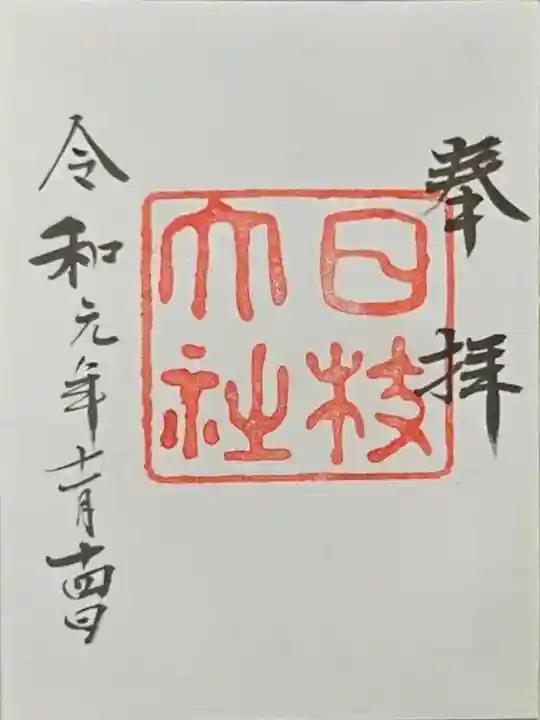 奉拝
日枝
大社
令和元年十一月十四日